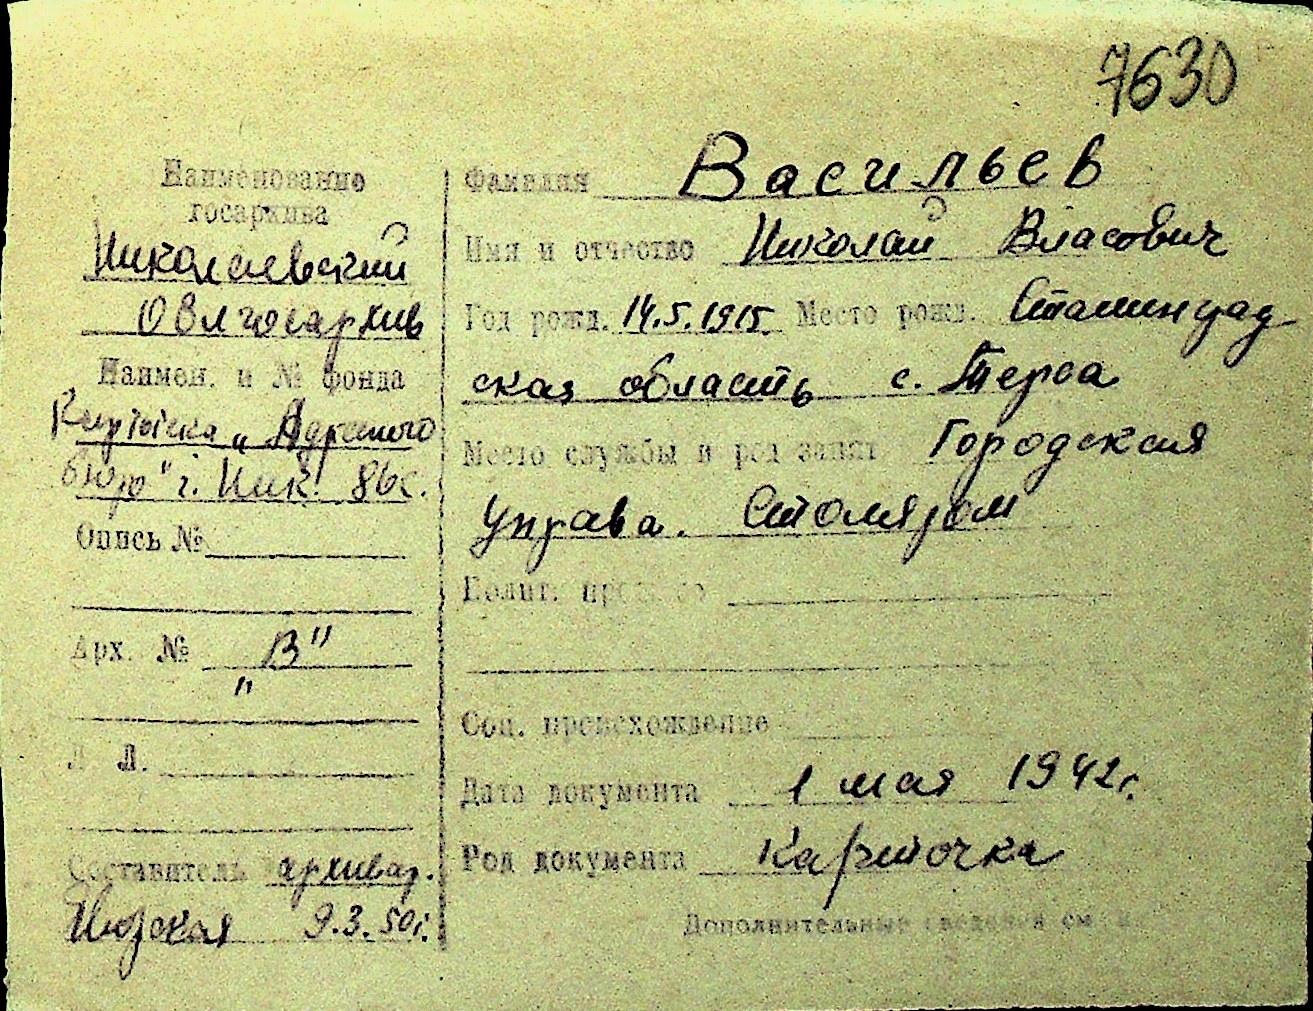 7630
Наименование
госархива
Николаевский
Облгосархив
Наимен. и № фонда
Картотека „Адресного
бюро" г. Ник. 86с.
Опись №
Арх. № „В"
Л Л.
Составитель архивар.
9.3.50г.
Фамилия Васильев
Имя и отчество Николай Власович
Год рожд. 14.5.1915 Место рожд. Сталинград
ская область с. Терса
Место службы и род занят Городская
управа. Столяром
Полит.
Соц. происхождение
Дата документа 1 мая 1942г.
Род документа Карточка
Дополнительные сведения см